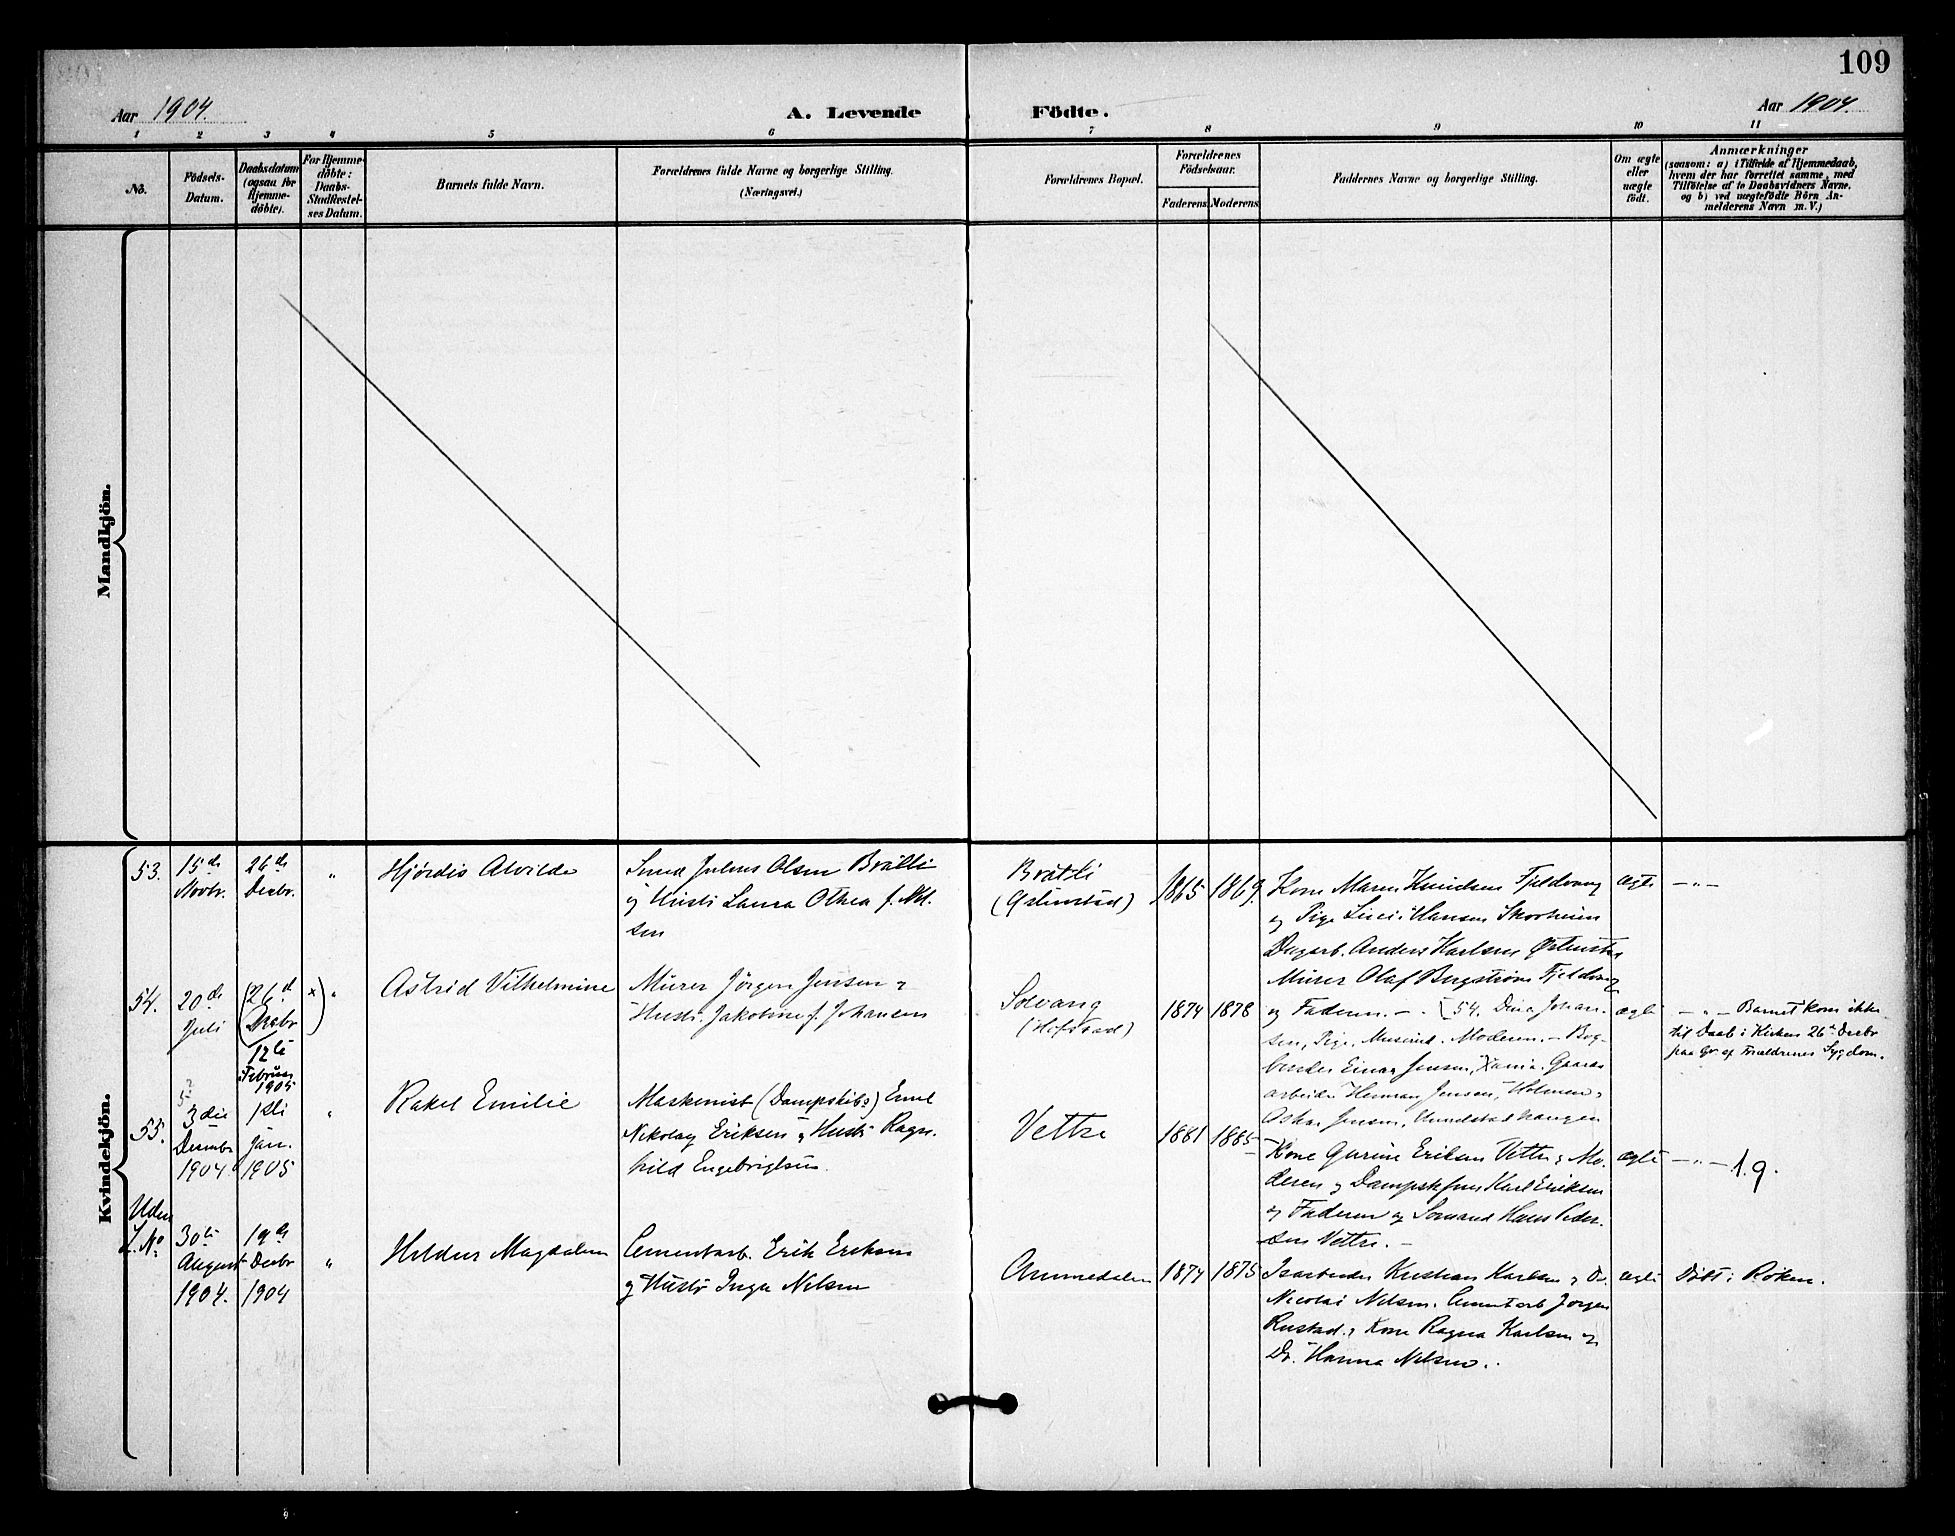 109
Aar 1904.
A. Levende Födte.
Aar 1904.
1 2 3 4 5 6 7 8 9 10 11
No.
Födsels-
Datum.
Daabsdatum
(ogsaa for
Hjemme-
döbte).
For Hjemme-
döbte:
Daabs-
Stadfæstel-
ses Datum.
Barnets fulde Navn.
Forældrenes fulde Navne og borgerlige Stilling.
(Næringsvei.)
Forældrenes Bopæl.
Forældrenes
Födselsaar.
Faderens Moderens
Faddernes Navne og borgerlige Stilling.
Om ægte
eller
uægte
födt.
Anmærkninger
(saasom: a) i Tilfælde af Hjemmedaab,
hvem der har forrettet samme, med
Tilföielse af to Daabsvidners Navne.
og b) ved uægtefödte Börn An-
melderens Navn m. V.)
Mandkjön.
Kvindekjön.
53.
15de
Novbr.
26de
Decbr.
"
Hjørdis Alvilde
Smed Julius Olsen Bråtli
og Hustr Laura Othea f. Nil-
sen
Bråtli
(Østenstad)
1865
1869.
Kone Maren Knudsen Fjeldvang
og Pige Hansen
Dagarb. Anders Karlsen Østenstad
Murer Olaf Bergstrøm Fjeldvang
og Faderen. —
ægte
— " —
54.
20de
Juli
(26d
Decbr)
x)
12te
Februar
1905
"
Astrid Vilhelmine
Murer Jörgen Jensen &
Hustr. Jakobine f. Johansen
Solvang
(Hofstad)
1874
1878
[54. Dina Johan-
sen, Pige, Moderen. — Bog-
binder Einar Jensen, Xania. Gaards
arbeider Herman Jensen, Holmen,
Oskar Jensen,
ægte
— " — Barnet kom ikke
til Daab i Kirken 26de Decbr
paa Gr. af Forældrenes Sygdom.
55.
5?
3die
Decembr
1904.
1ste
Jan.
1905
"
Rakel Emilie
Maskinist (Dampskibs) Emil
Nikolay Eriksen og Hustr Ragn-
hild Engebrigtsen.
Vettre
1881
1885
Kone Gurine Eriksen Vettre, Mo-
deren og Karl Eriksen
og Faderen og Sømand Hans Peder-
sen Vettre. —
ægte
— " — 1.9.
Uden
L. No
30te
August
1904.
19de
Decbr
1904
"
Hildur Magdalene
Cementarb. Erik Eriksen
og Hustr Inga Nilsen
1874
1875
Isarbeider Kristian Karlsen & Do.
Nicolai Nilsen. Cementarb Jørgen
Rustad. Kone Ragna Karlsen og
Do. Hanna Nilsen.
ægte
Døbt i Røken.